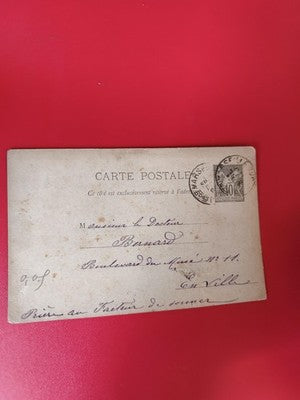 CARTE POSTALE
Ce côté est exclusivement réservé à l'adresse
MARSEILLE
10
Monsieur le Docteur
Bernard
Boulevard du Musée No 11.
En Ville
Prière au Facteur de sonner